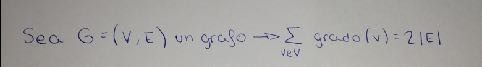 Sea G=(V,E) un grafo => Σ grado(v)=2|E|
v∈V